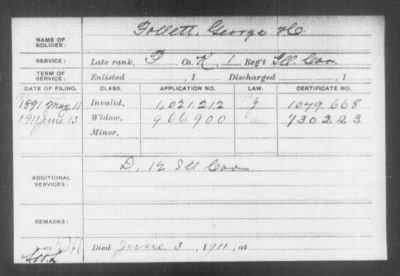 NAME OF SOLDIER: Follett, George H.
SERVICE: Late rank, P Co. K, 1 Reg't Ill. Cav
TERM OF SERVICE: Enlisted , 1 Discharged , 1
DATE OF FILING. CLASS. APPLICATION NO. LAW. CERTIFICATE NO.
1891 May 11 Invalid, 1,021,212 1079668
1911 June 13 Widow, 966900 730223
Minor,
ADDITIONAL SERVICES: D, 12 Ill Cav
REMARKS:
Died June 3, 1911, at